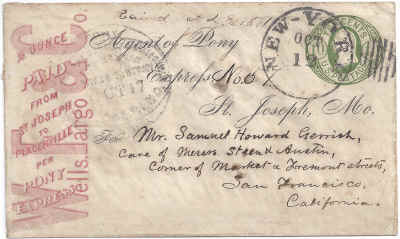 Wells, Fargo & Co
½ OUNCE
PAID
FROM
ST JOSEPH
TO
PLACERVILLE
PER
PONY
EXPRESS
NEW-YORK
OCT
CENTS
Agent of Pony
Express No.
St. Joseph, Mo.
For Mr. Samuel Howard Gerrish,
Care of Messrs Steen & Austin,
Corner of Market & Fremont streets,
San Francisco,
California.